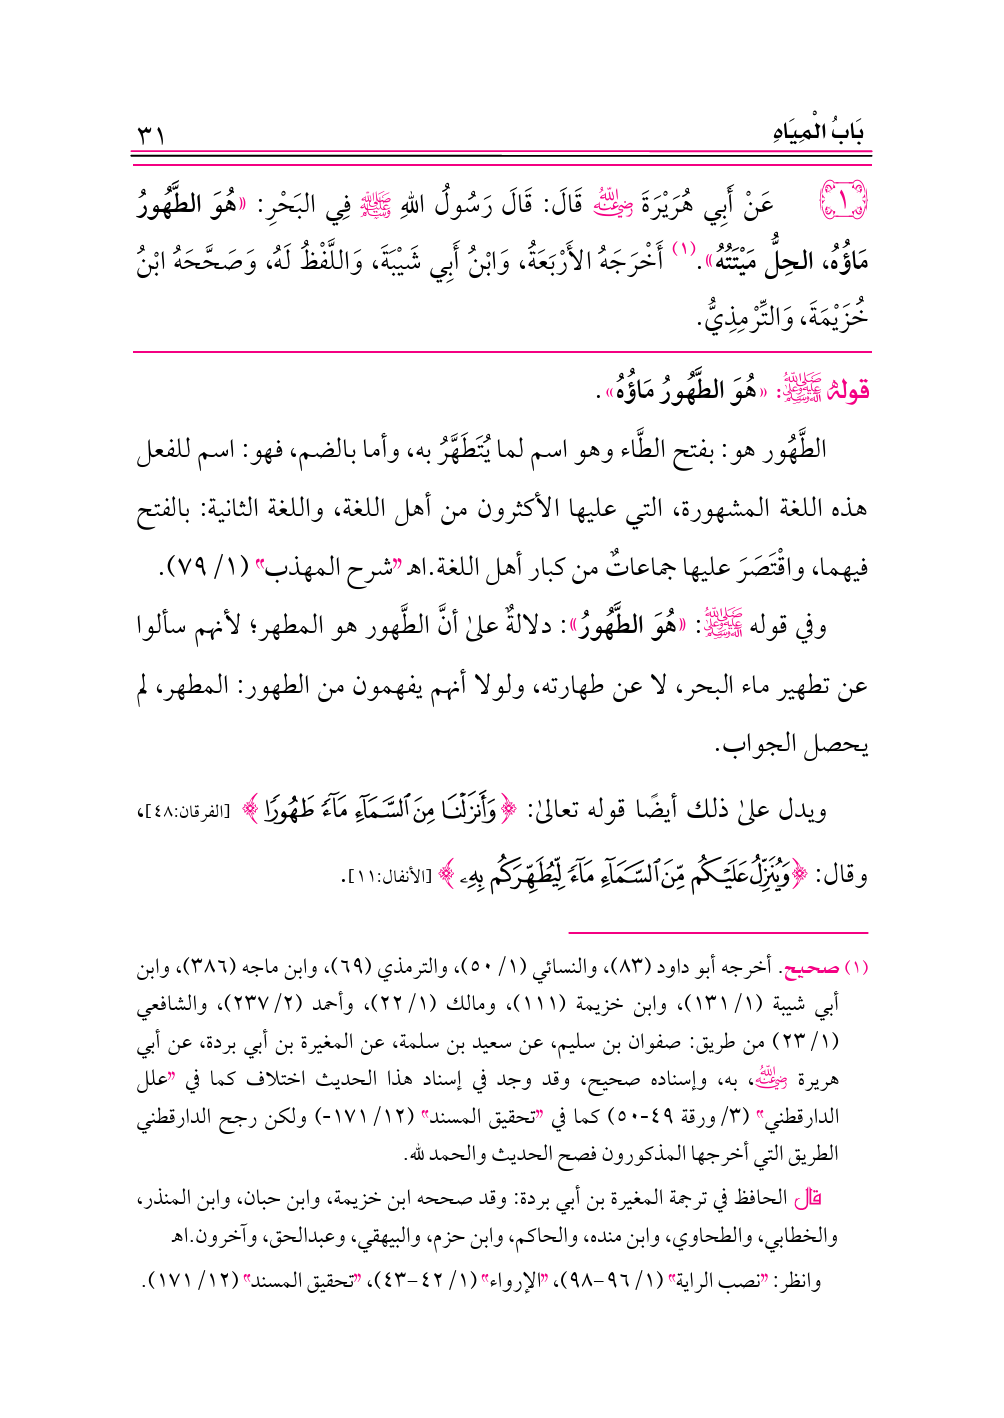 بَابُ الْمِيَاهِ
٣١
١ عَنْ أَبِي هُرَيْرَةَ رضي الله عنه قَالَ: قَالَ رَسُولُ اللهِ ﷺ فِي البَحْرِ: «هُوَ الطَّهُورُ
مَاؤُهُ، الحِلُّ مَيْتَتُهُ».(١) أَخْرَجَهُ الأَرْبَعَةُ، وَابْنُ أَبِي شَيْبَةَ، وَاللَّفْظُ لَهُ، وَصَحَّحَهُ ابْنُ
خُزَيْمَةَ، وَالتِّرْمِذِيُّ.
قوله ﷺ: «هُوَ الطَّهُورُ مَاؤُهُ».
الطَّهُور هو: بفتح الطَّاء وهو اسم لما يُتَطَهَّرُ به، وأما بالضم، فهو: اسم للفعل
هذه اللغة المشهورة، التي عليها الأكثرون من أهل اللغة، واللغة الثانية: بالفتح
فيهما، واقْتَصَرَ عليها جماعاتٌ من كبار أهل اللغة.اهـ "شرح المهذب" (١/ ٧٩).
وفي قوله ﷺ: «هُوَ الطَّهُورُ»: دلالةٌ علىٰ أنَّ الطَّهور هو المطهر؛ لأنهم سألوا
عن تطهير ماء البحر، لا عن طهارته، ولولا أنهم يفهمون من الطهور: المطهر، لم
يحصل الجواب.
ويدل علىٰ ذلك أيضًا قوله تعالىٰ: ﴿وَأَنزَلْنَا مِنَ ٱلسَّمَآءِ مَآءً طَهُورًا﴾ [الفرقان:٤٨]،
وقال: ﴿وَيُنَزِّلُ عَلَيْكُم مِّنَ ٱلسَّمَآءِ مَآءً لِّيُطَهِّرَكُم بِهِۦ﴾ [الأنفال:١١].
(١) صحيح. أخرجه أبو داود (٨٣)، والنسائي (١/ ٥٠)، والترمذي (٦٩)، وابن ماجه (٣٨٦)، وابن
أبي شيبة (١/ ١٣١)، وابن خزيمة (١١١)، ومالك (١/ ٢٢)، وأحمد (٢/ ٢٣٧)، والشافعي
(١/ ٢٣) من طريق: صفوان بن سليم، عن سعيد بن سلمة، عن المغيرة بن أبي بردة، عن أبي
هريرة رضي الله عنه، به، وإسناده صحيح، وقد وجد في إسناد هذا الحديث اختلاف كما في "علل
الدارقطني" (٣/ ورقة ٤٩-٥٠) كما في "تحقيق المسند" (١٢/ ١٧١-) ولكن رجح الدارقطني
الطريق التي أخرجها المذكورون فصح الحديث والحمد لله.
قال الحافظ في ترجمة المغيرة بن أبي بردة: وقد صححه ابن خزيمة، وابن حبان، وابن المنذر،
والخطابي، والطحاوي، وابن منده، والحاكم، وابن حزم، والبيهقي، وعبدالحق، وآخرون.اهـ
وانظر: "نصب الراية" (١/ ٩٦-٩٨)، "الإرواء" (١/ ٤٢-٤٣)، "تحقيق المسند" (١٢/ ١٧١).